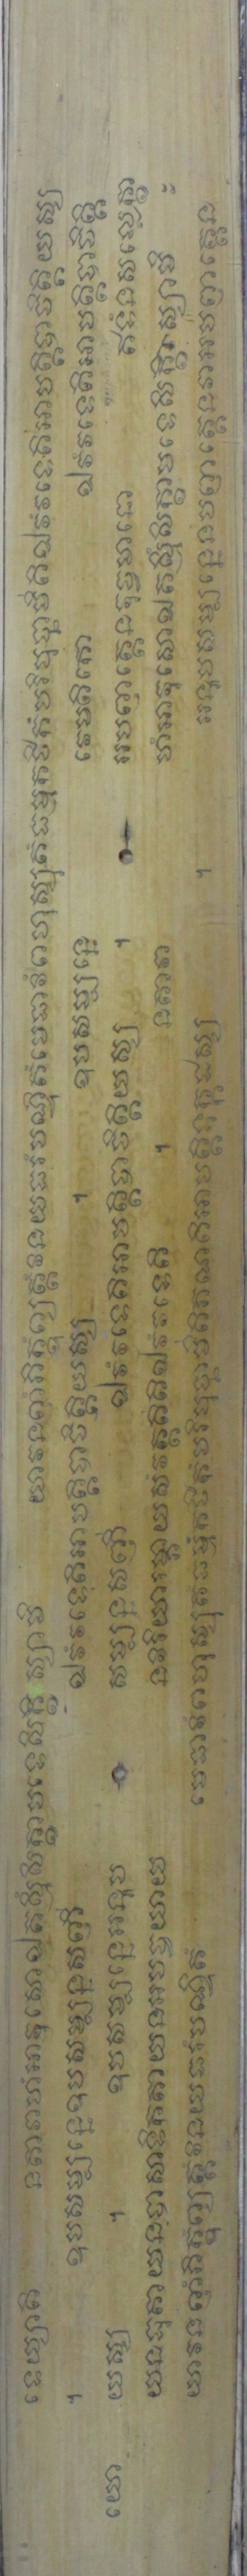 ទេយ្យាតិ នតាវាហំអាវុសោឯតស្មឹសិក្ខាបទេសិក្ខិស្សាមិ យាវនញំភិក្ខុំព្យត្តំវិនយធរំបណ្ឌិតំមេធាវឹពហុស្សុតំធម្មកថិកំបរិបុច្ឆាមីតិឯវំវទេតិអាបត្តិបាចិត្តិយស្ស
។ ឧបសម្បន្នេឧបសម្បន្នសញី ឯវំវទេតិអាបត្តិបាចិត្តិយស្ស ។ ឧបសម្បន្នេ វេមតិកោ ឯវំវទេតិអាបត្តិបាចិត្តិ
យោ យស្ស ។ ឧបសម្បន្នេអនុប សម្បន្នសញី ឯវំវទេតិអាបត្តិបាចិត្តិយស្ស ។ អបញត្តេនវុច្ចមានោ ឥទំនសល្លេក្ខា
យនធុតាយនបាសាទិកតាយនអបច្ចយាយ នវិរិយារម្ភាយសំវត្តតីតិឯវំវទេតិ ។ នតាវា ហំអាវុសោឯតស្មឹសិក្ខាបទេសិក្ខិស្សាមិ
យាវនញំភិក្ខុំព្យត្តំវិនយធរំបណ្ឌិតំ មេធាវឹពហុស្សុតំធម្មកថិកំបរិបុច្ឆាមីតិភណតិអាបត្តិទុក្កដស្ស ។ អនុបសម្បន្នេនបញត្តេនវាអបញត្តេន